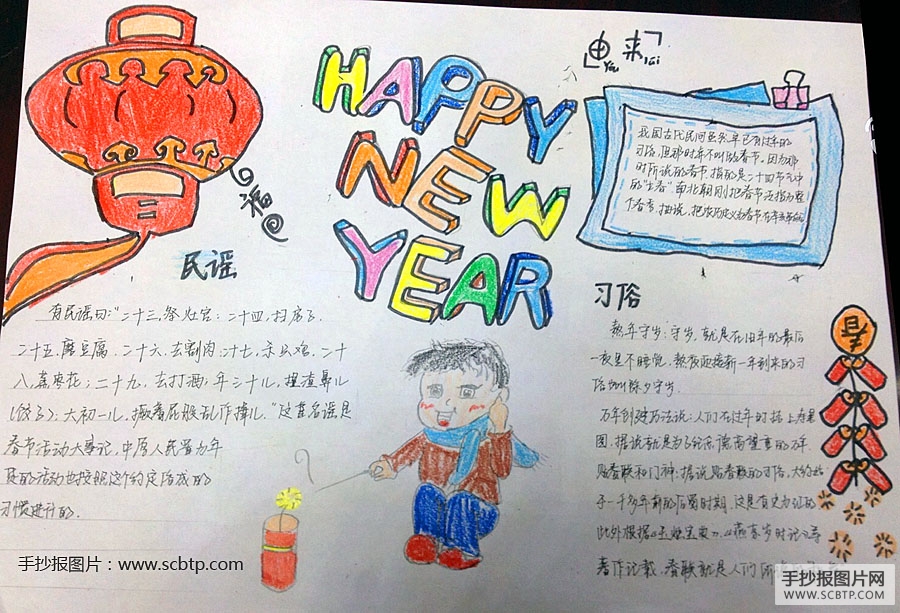 HAPPY
NEW
YEAR
由来
You lai
我国古代民间虽然早已有过年的
习俗,但那时并不叫做春节。因为那
时所说的春节,指的是二十四节气中
的"立春"南北朝则把春节泛指为整
个春季,据说,把农历定义为春节
福
民谣
有民谣曰:"二十三,祭灶官;二十四,扫房子
二十五,磨豆腐;二十六,去割肉;二十七,杀只鸡,二十
八,蒸枣花;二十九,去打酒;年三十儿,捏渣鼻儿
(饺子);大初一儿,撅着屁股乱作揖儿。"这首名谣是
春节活动大事记,中原人民省为年
的活动也按照这个约定俗成的
习惯进行的。
习俗
熬年守岁:守岁,就是在旧年的最后
一夜里不睡觉,熬夜迎接新一年到来的习
俗,叫除夕守岁。
万年创建历法说:人们在过年时挂上寿星
图,据说就是为了纪念德高望重的万年
贴春联和门神:据说贴春联的习俗,大约始
于一千多年前的后蜀时期,这是有史为证的
此外根据《玉烛宝典》,《燕京岁时记》等
著作记载,春联就是人们
春
手抄报图片:www.scbtp.com
手抄报图片网
WWW.SCBTP.COM